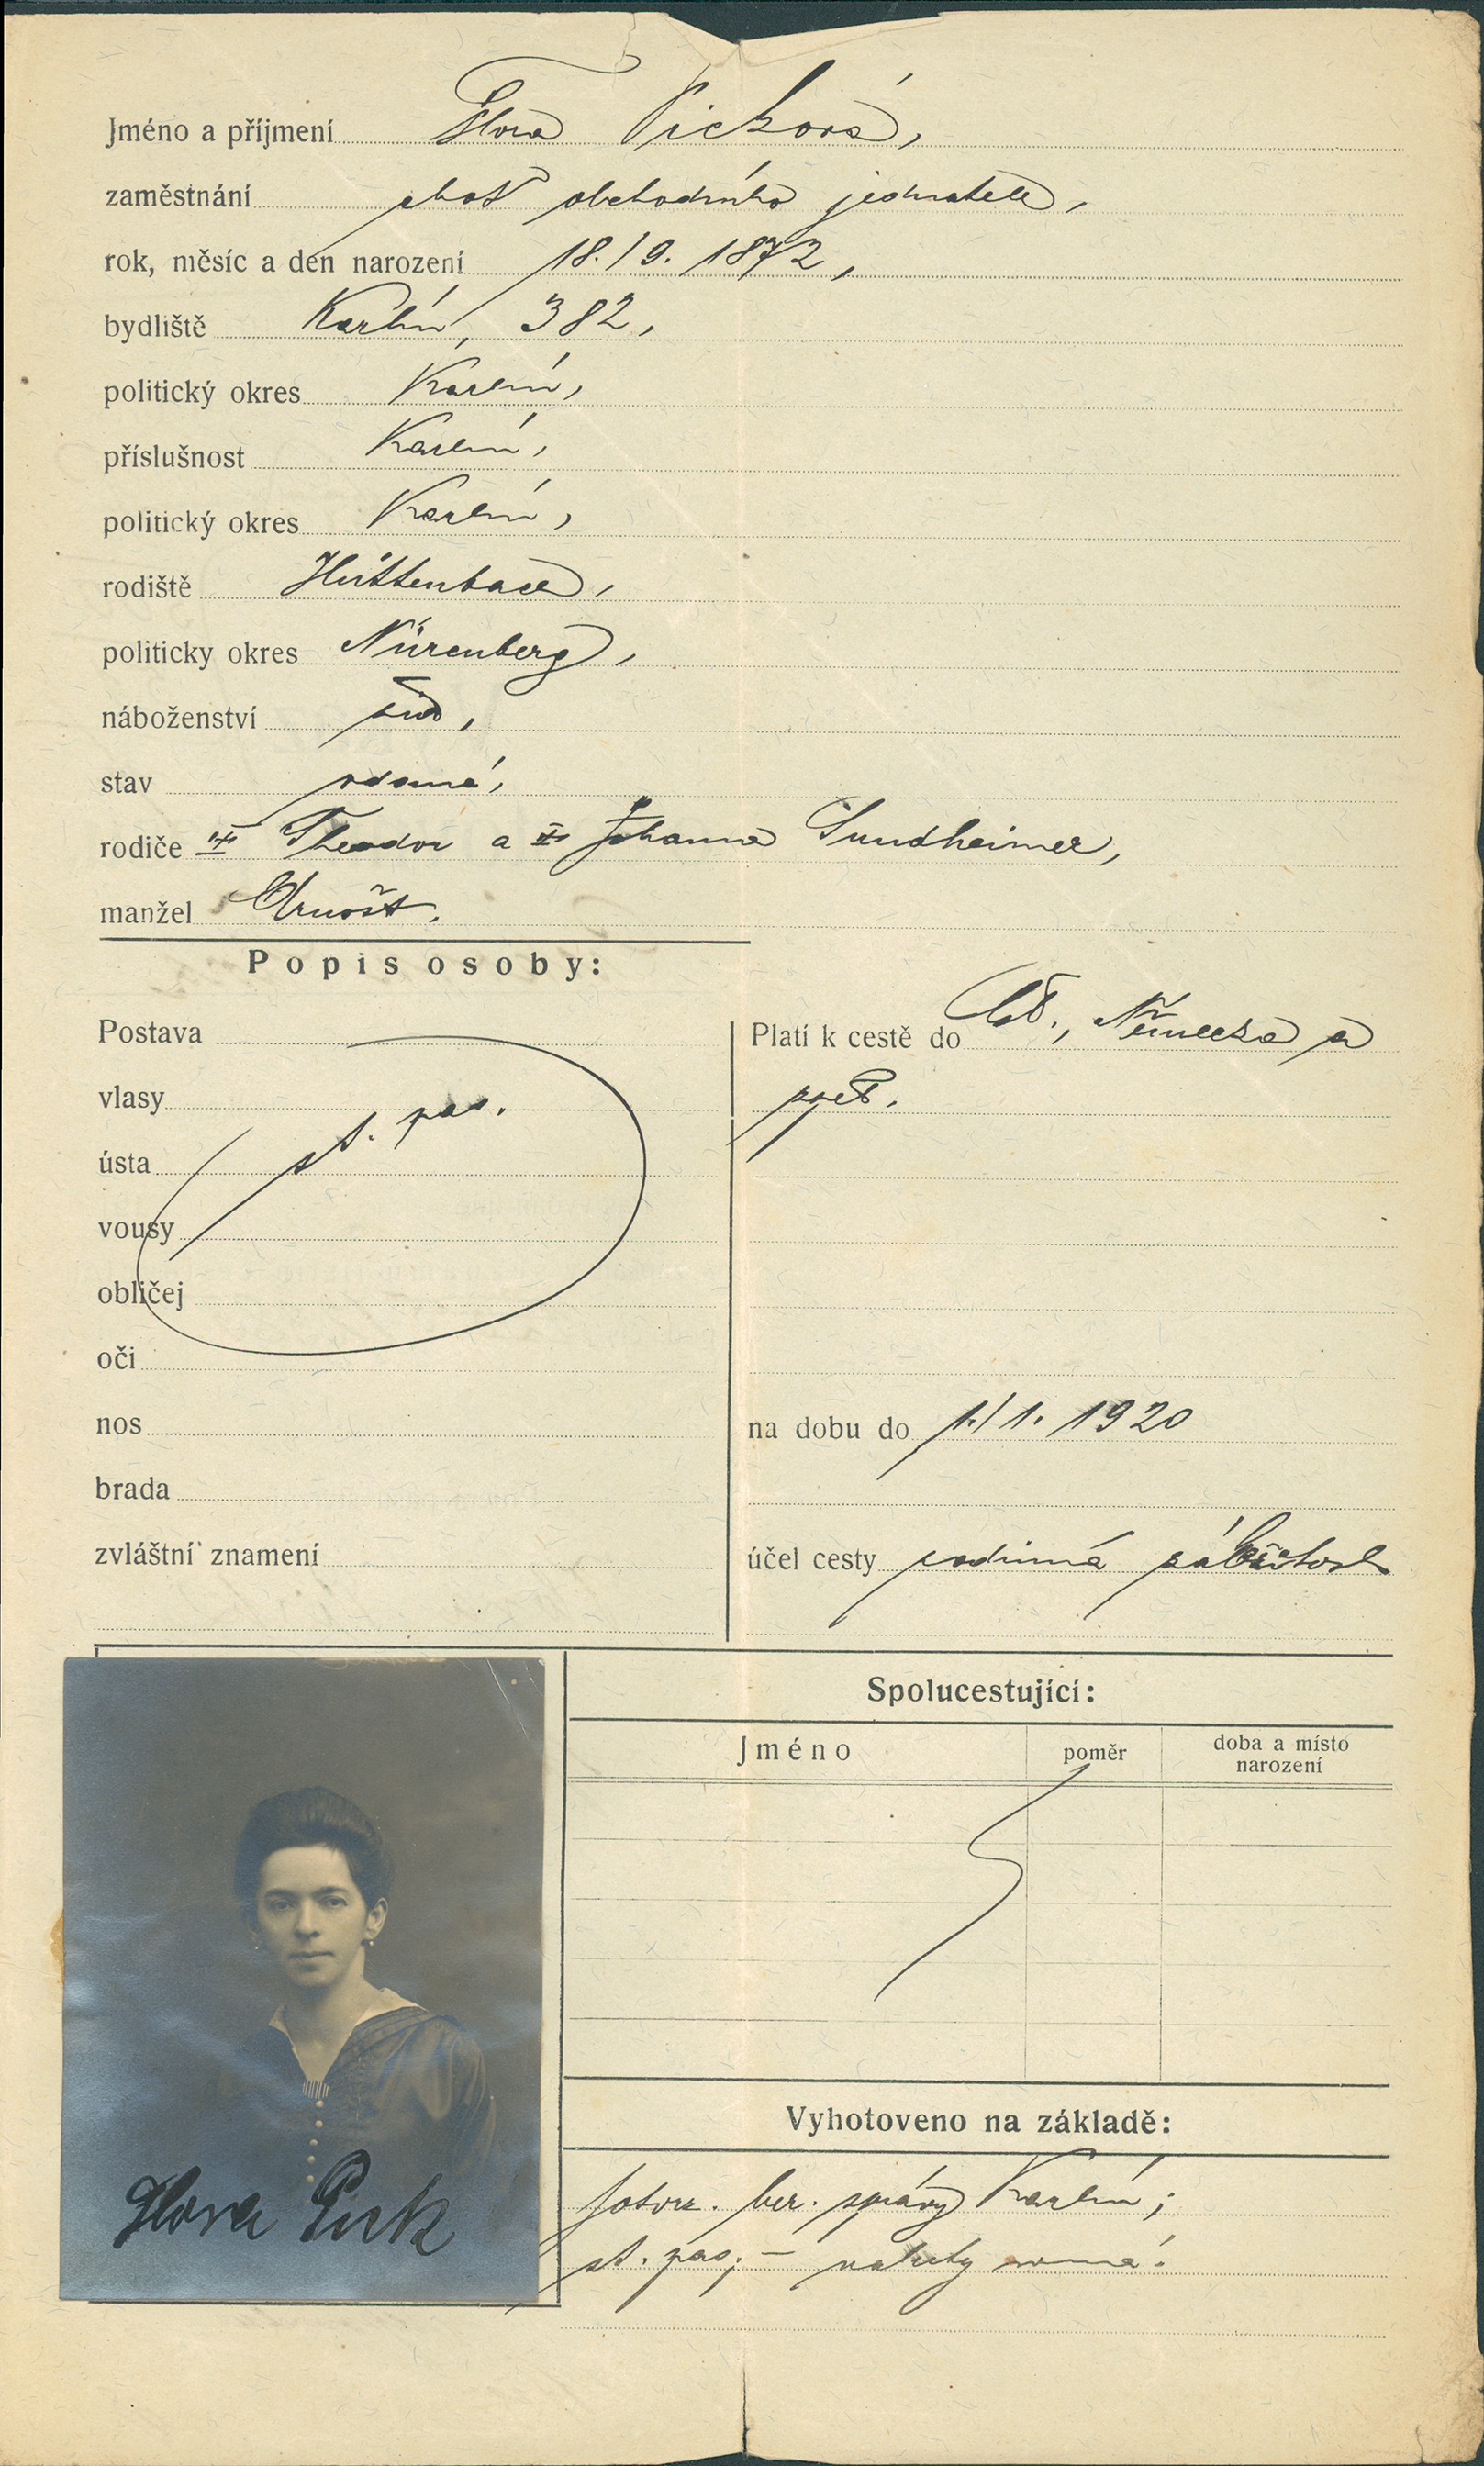 Jméno a příjmení Flora Picková,
zaměstnání choť obchodního jednatele,
rok, měsíc a den narození 18./9. 1872,
bydliště Karlín, 382,
politický okres Karlín,
příslušnost Karlín,
politický okres Karlín,
rodiště Hüttenbach,
politicky okres Nürenberg,
náboženství žid,
stav vdaná,
rodiče Theodor a Johanna Sundheimer,
manžel Arnošt.
Popis osoby:
Postava
vlasy
st. pas.
ústa
vousy
obličej
oči
nos
brada
zvláštní znamení
Platí k cestě do Německa a
zpět.
na dobu do 1./1. 1920
účel cesty rodinná záležitost
Spolucestující:
Jméno
poměr
doba a místo
narození
Vyhotoveno na základě:
ber. správy Karlín;
st. pas; –
Flora Pick